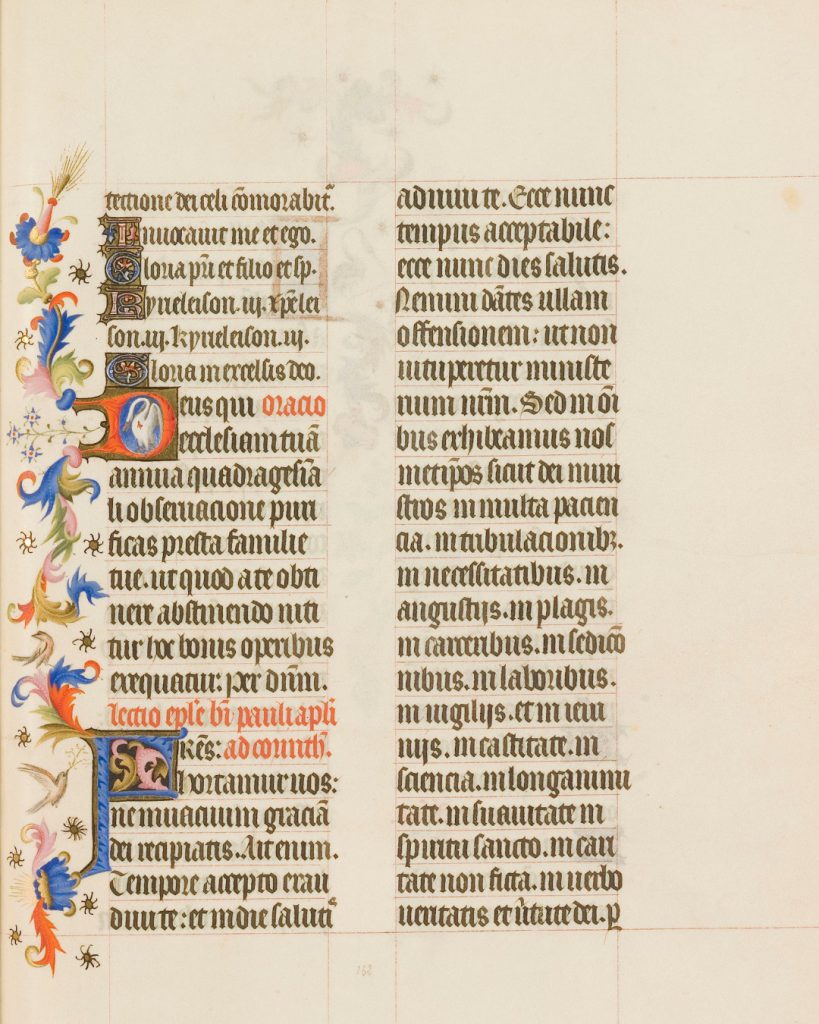 tectione dei celi cōmorabit᷑.
Inuocauit me et ego.
Gloria pr̄i et filio et sp̄.
Kyrieleison. iij. xp̄elei
son. iij. kyrieleison. iij.
Gloria in excelsis deo.
Deus qui oracio
ecclesiam tuā
annua quadragesīa
li obseruacione puri
ficas presta familie
tue. ut quod a te obti
nere abstinendo niti
tur hoc bonis operibus
exequatur: per dn̄m.
lectio ep̄le bī pauli apl̄i
Fr̄es: ad corinth̄.
Exhortamur uos:
ne in uacuum graciā
dei recipiatis. Ait enim.
Tempore accepto exau
diui te: et in die saluti᷒
adiuui te. Ecce nunc
tempus acceptabile:
ecce nunc dies salutis.
Nemini dātes ullam
offensionem: ut non
uituperetur ministe
rium nr̄m. Sed in oı̄
bus exhibeamus nos
metip̄os sicut dei mini
stros in multa pacien
cia. in tribulacionibꝫ.
in necessitatibus. in
angustijs. in plagis.
in carceribus. in sedicō
nibus. in laboribus.
in uigilijs. et in ieiu
nijs. in castitate. in
sciencia. in longanimi
tate. in suauitate in
spiritu sancto. in cari
tate non ficta. in uerbo
ueritatis et ūtute dei. ꝑ
162